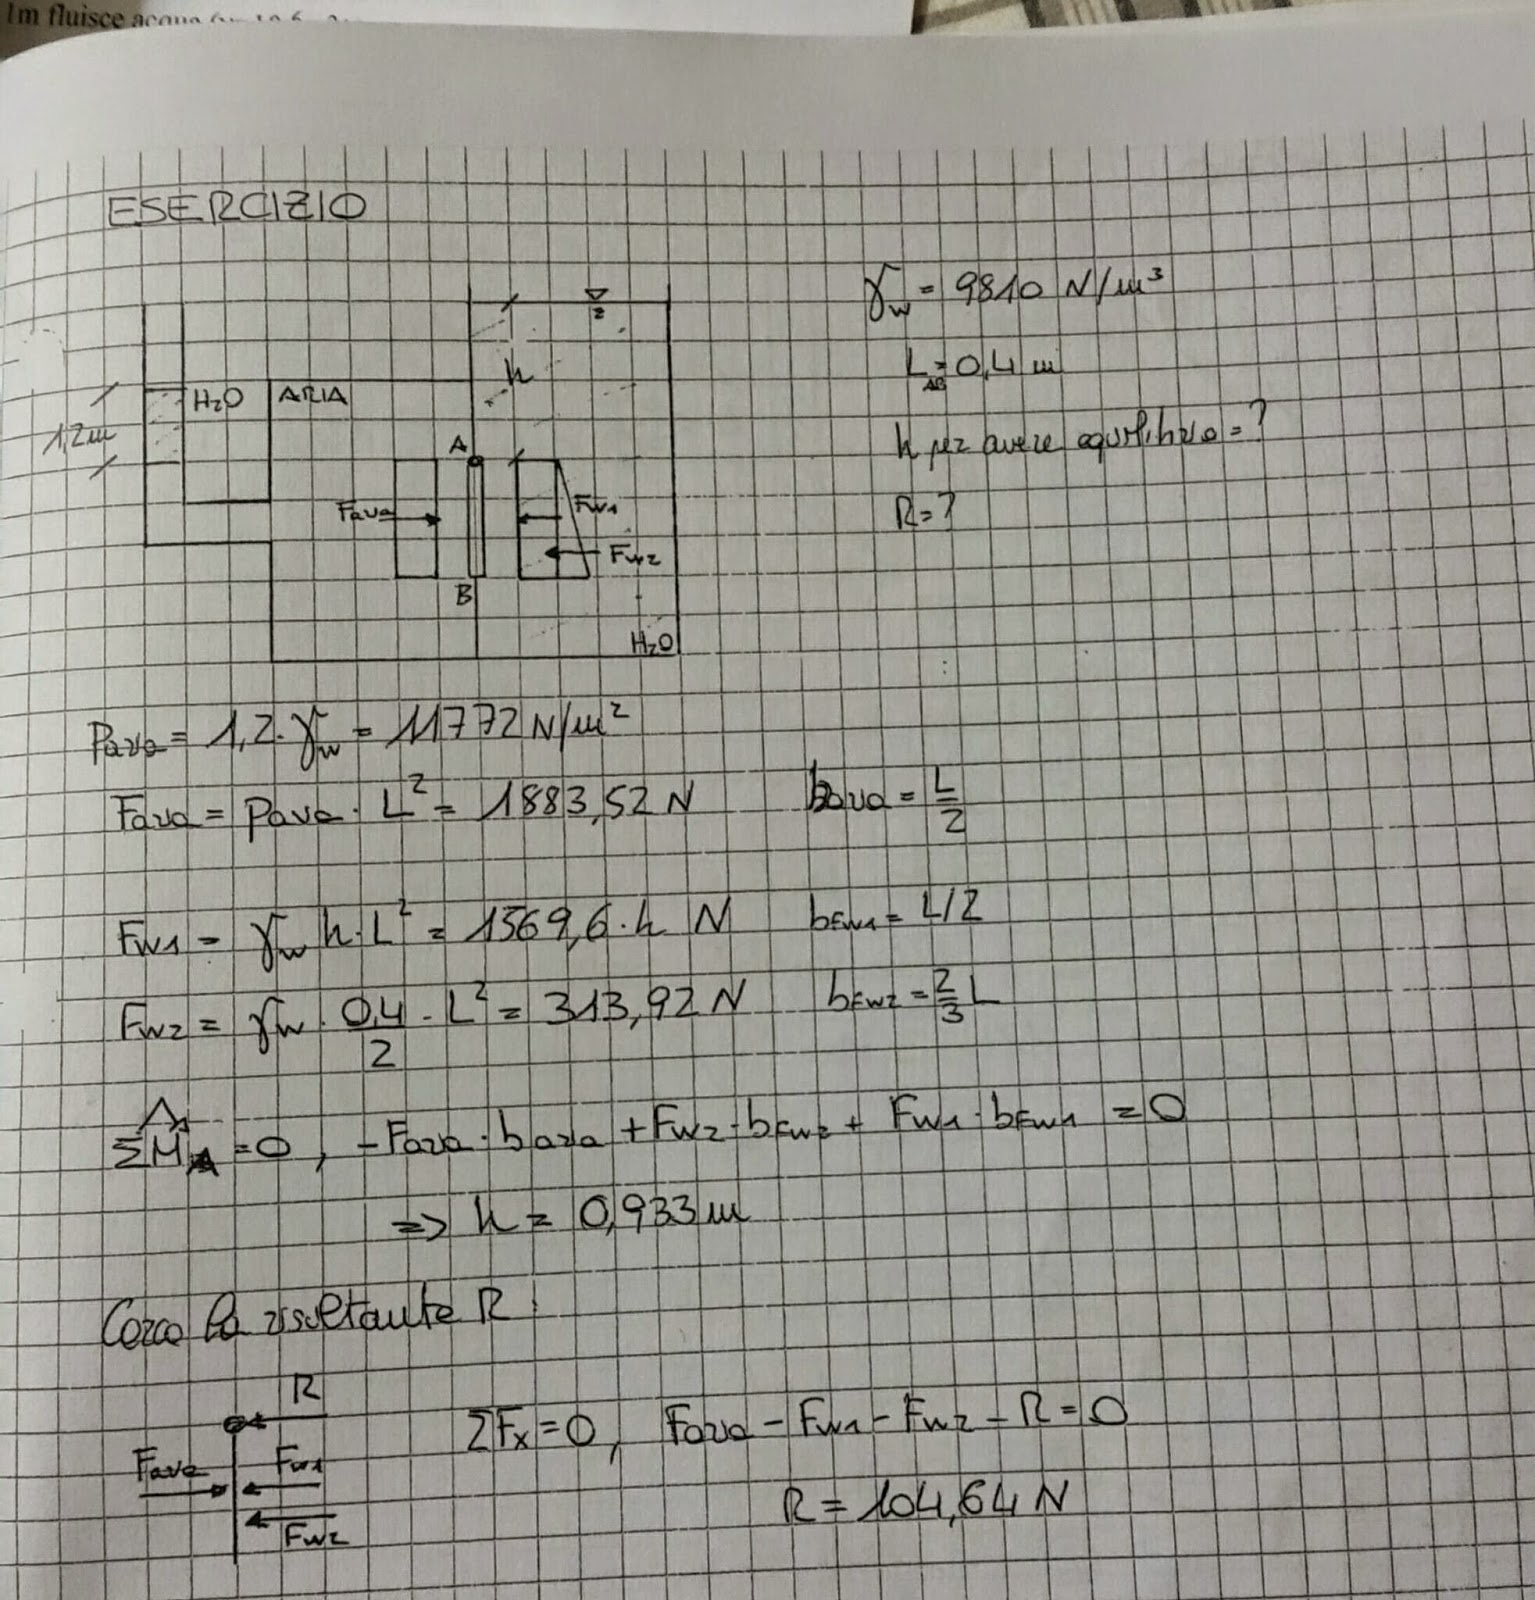 1m fluisce acqua
ESERCIZIO
γw = 9810 N/m³
L = 0,4 m
AB
h per avere equilibrio = ?
R = ?
h
H₂O
ARIA
1,2m
A
Faria
Fw1
Fw2
B
H₂O
Paria = 1,2 · γw = 11772 N/m²
Faria = paria · L² = 1883,52 N baria = L/2
Fw1 = γw h · L² = 1569,6 · h N bFw1 = L/2
Fw2 = γw · 0,4/2 · L² = 313,92 N bFw2 = 2/3 L
ΣMA = 0 , -Faria · baria + Fw2 · bFw2 + Fw1 · bFw1 = 0
=> h = 0,933 m
Cerco la risultante R :
R
Faria
Fw1
Fw2
ΣFx = 0 , Faria - Fw1 - Fw2 - R = 0
R = 104,64 N